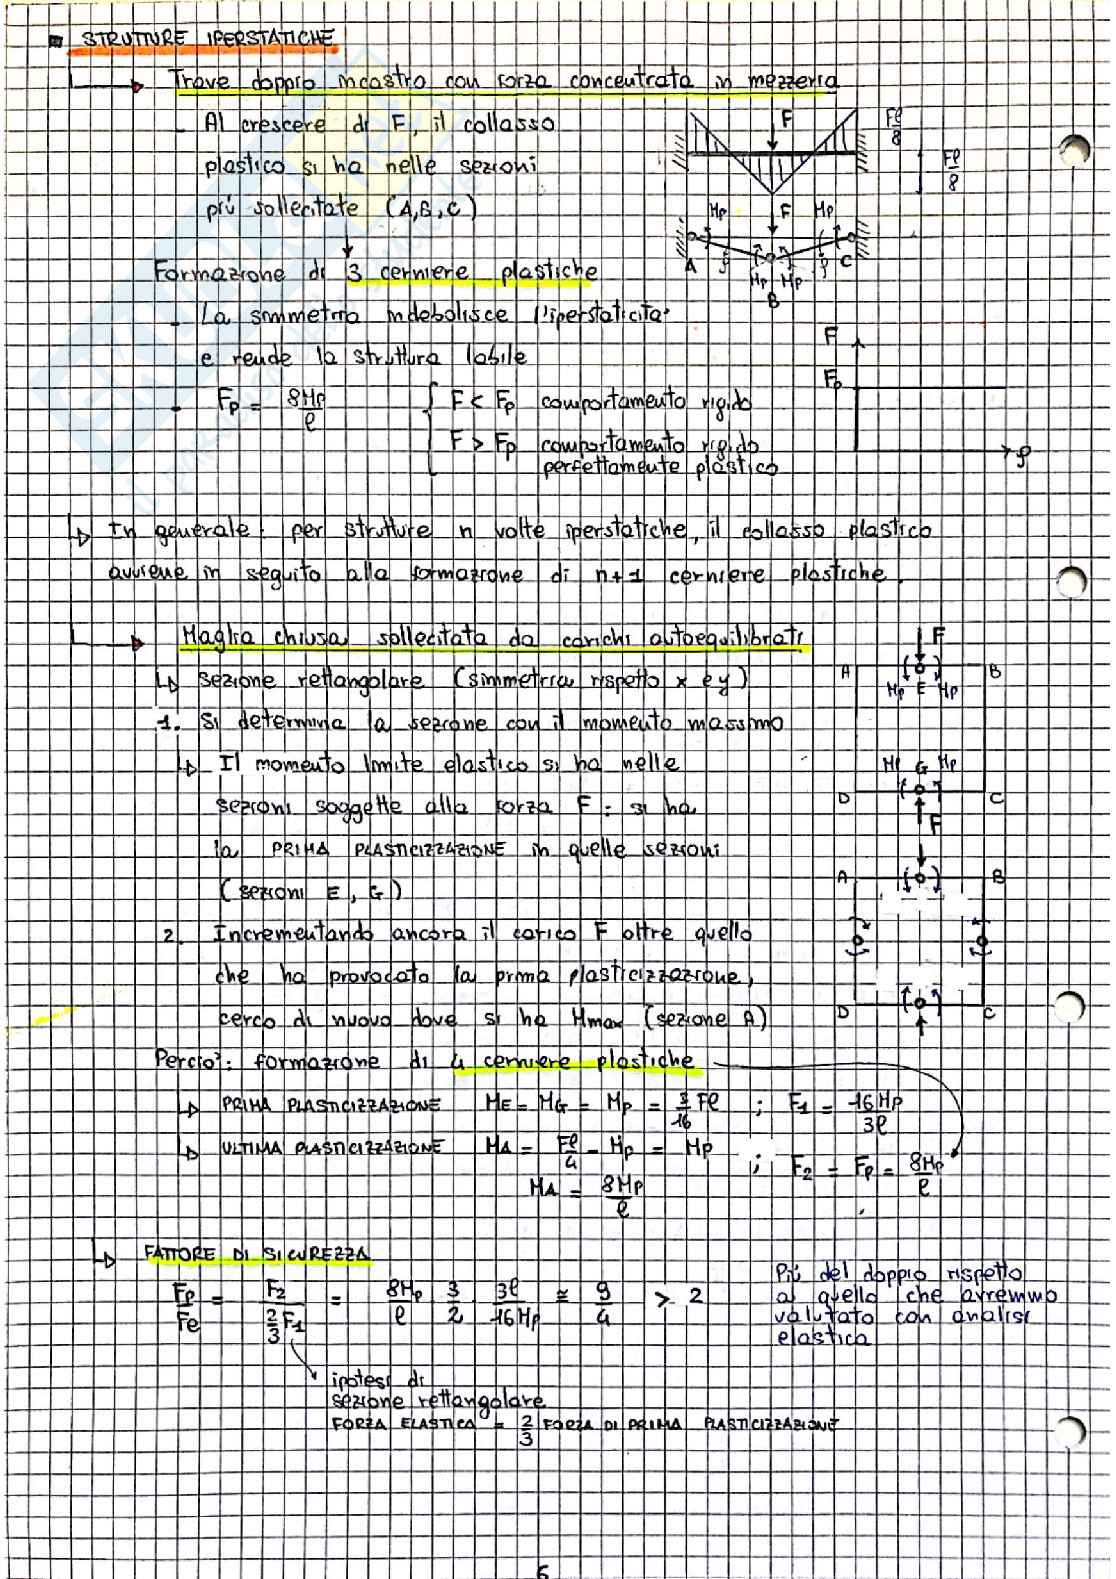 STRUTTURE IPERSTATICHE
Trave doppio incastro con forza concentrata in mezzeria
- Al crescere di F, il collasso
plastico si ha nelle sezioni
più sollecitate (A,B,C)
F
Fl/8
Fl/8
Mp F Mp
A φ φ C
Mp Mp
B
Formazione di 3 cerniere plastiche
- La simmetria indebolisce l'iperstaticità
e rende la struttura labile
- Fp = 8Mp/l
{ F < Fp comportamento rigido
F > Fp comportamento rigido
perfettamente plastico
F
Fp
φ
In generale: per strutture n volte iperstatiche, il collasso plastico
avviene in seguito alla formazione di n+1 cerniere plastiche.
Maglia chiusa sollecitata da carichi autoequilibrati
Sezione rettangolare (simmetria rispetto x e y)
1. Si determina la sezione con il momento massimo
Il momento limite elastico si ha nelle
sezioni soggette alla forza F: si ha
la PRIMA PLASTICIZZAZIONE in quelle sezioni
(sezioni E, G)
F
A B
Mp E Mp
Mp G Mp
D C
F
2. Incrementando ancora il carico F oltre quello
che ha provocato la prima plasticizzazione,
cerco di nuovo dove si ha Mmax (sezione A)
A B
D C
Perciò: formazione di 4 cerniere plastiche
PRIMA PLASTICIZZAZIONE ME = MG = Mp = 3/16 Fl ; F1 = 16Mp/3l
ULTIMA PLASTICIZZAZIONE MA = Fl/4 - Mp = Mp ; F2 = Fp = 8Mp/l
MA = 8Mp/l
FATTORE DI SICUREZZA
Fp/Fe = F2/(2/3 F1) = 8Mp/l 3/2 3l/16Mp ≅ 9/4 > 2
Più del doppio rispetto
a quello che avremmo
valutato con analisi
elastica
ipotesi di
sezione rettangolare
FORZA ELASTICA = 2/3 FORZA DI PRIMA PLASTICIZZAZIONE
6